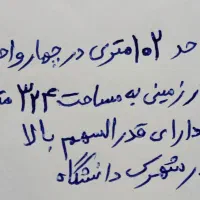 حد ۱۰۲ متری در چهار واحد
ر زمینی به مساحت ۳۲۴ مت
دارای قدرالسهم بالا
ر شهرک دانشگاه